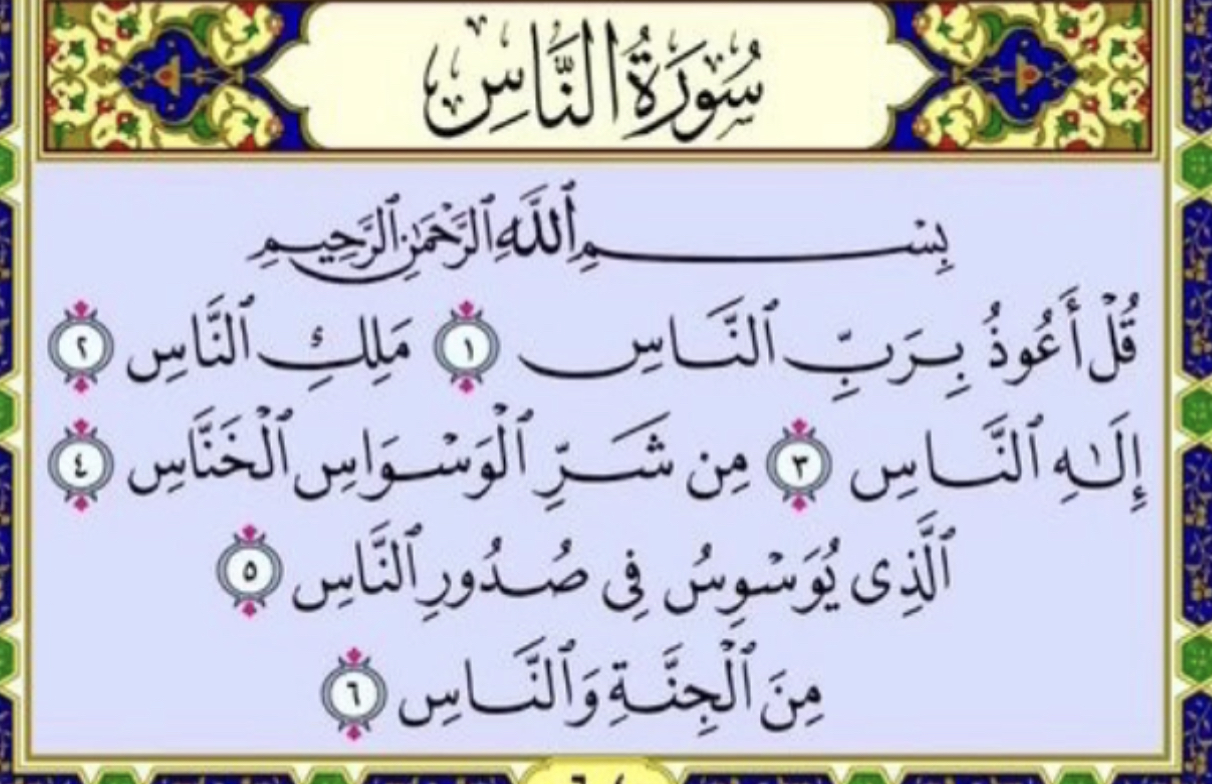 سُورَةُ النَّاسِ
بِسْمِ ٱللَّهِ ٱلرَّحْمَٰنِ ٱلرَّحِيمِ
قُلْ أَعُوذُ بِرَبِّ ٱلنَّاسِ ١ مَلِكِ ٱلنَّاسِ ٢
إِلَٰهِ ٱلنَّاسِ ٣ مِن شَرِّ ٱلْوَسْوَاسِ ٱلْخَنَّاسِ ٤
ٱلَّذِى يُوَسْوِسُ فِى صُدُورِ ٱلنَّاسِ ٥
مِنَ ٱلْجِنَّةِ وَٱلنَّاسِ ٦